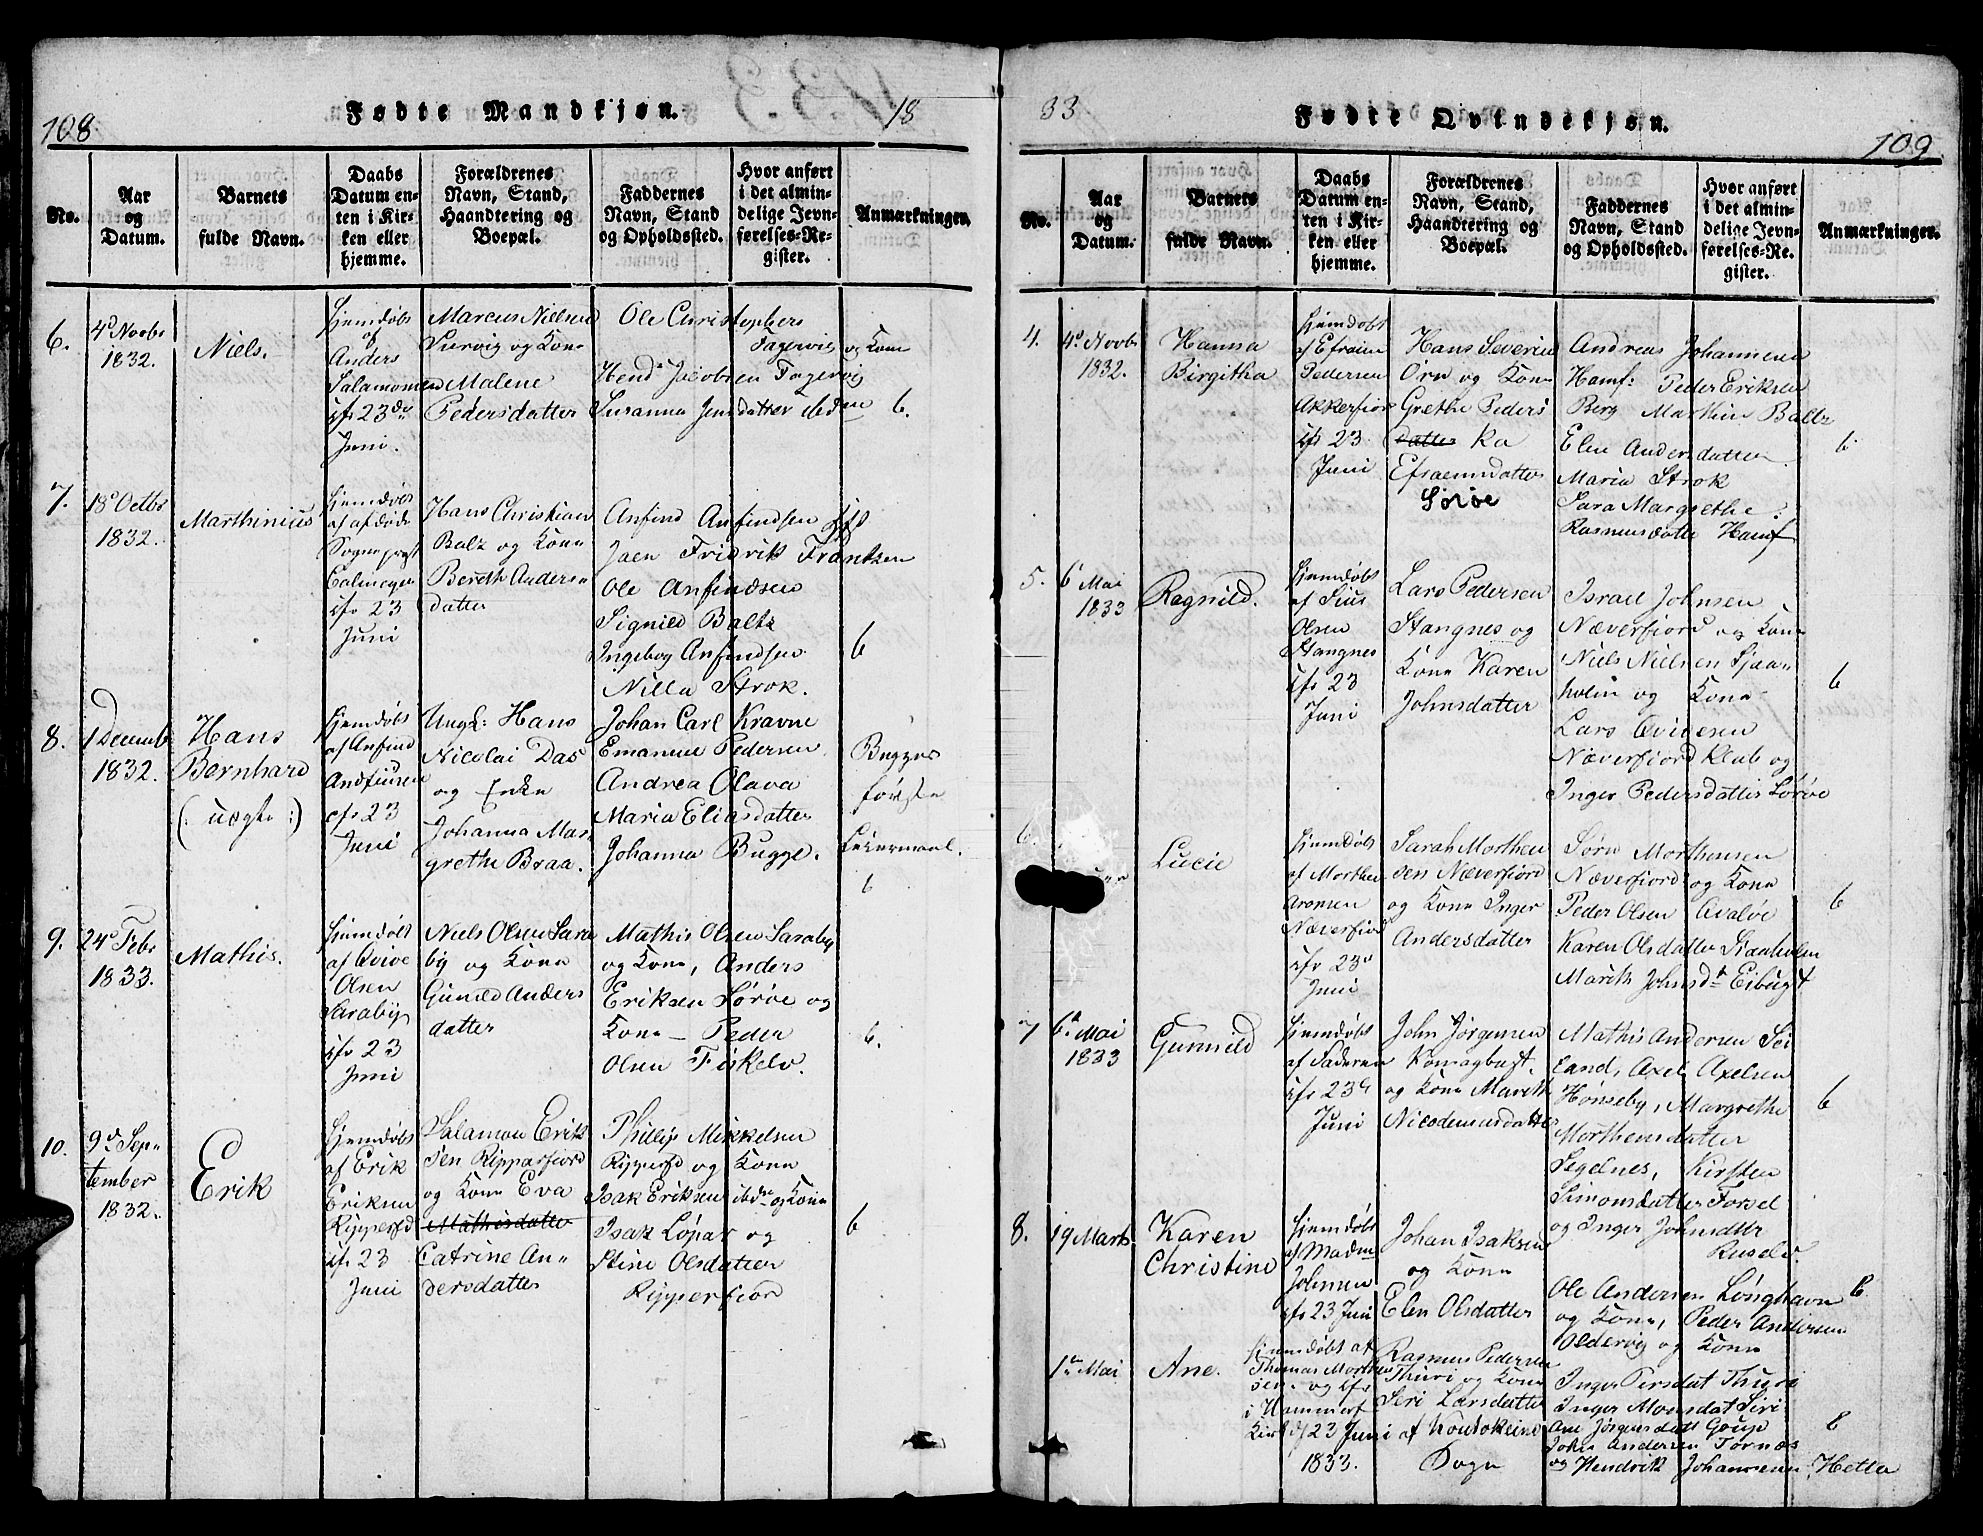 108
Fødte Mandkjøn.
18
No.
Aar
og
Datum.
Barnets
fulde Navn.
Daabs
Datum en-
ten i Kir-
ken eller
hjemme.
Forældrenes
Navn, Stand,
Haandtering og
Boepæl.
Faddernes
Navn, Stand
og Opholdssted.
Hvor anført
i det almin-
delige Jevn-
førelses-Re-
gister.
Anmærkninger.
6.
4d Novbr
1832.
Niels.
Hjemdøbt
af
Anders
Salamonsen
ifr 23de
Juni.
Marcus Nielsen
og Kone
Malene
Pedersdatter
Ole Christophers
Fagervig og Kone
Hend. Jacobsen Fagervig
Susanna Jensdatter ibdm
6.
7.
18d Octbr
1832.
Marthinius
Hjemdøbt
af afdøde
Sogneprest
ifr 23
Juni
Hans Christian
Balz og Kone
Bereth Anders-
datter
Anfind Anfindsen
Jaen Fridrik Frantzen
Ole Anfindsen
Signild Baltz
Ingebog Anfindsen
Nilla Strok.
6
8.
1 Decembr
1832.
Hans
Bernhard
(: uægte :)
Hjemdøbt
af Anfind
Andfinsen
ifr 23
Juni
Ungk: Hans
Nicolai Das
og Enke
Johanna Mar-
grethe Braa.
Johan Carl Kravne
Emanuel Pedersen
Andrea Olava
Maria Eliasdatter
Johanna Bugge.
Bugges
første
Leiermaal.
6
9.
24d Febr
1833.
Mathis.
Hjemdøbt
af Qvive
Olsen
Saraby
ifr 23
Juni
Niels Olsen Sara
by og Kone
Gunild Anders
datter
Mathis Olsen Saraby
og Kone, Anders
Eriksen Sørøe og
Kone – Peder
Olsen Fiskelv.
6.
10.
9d Sep-
tember
1832.
Erik
Hjemdøbt
af Erik
Eriksen
Ripperfd
ifr 23
Juni
Salamon Erik
sen Ripparfiord
og Kone Eva
Mathisdatter
Catrine An-
dersdatter
Phillip Mikkelsen
Ripperfd og Kone
Isak Eriksen ibdm og Kone
Isak Lópar og
Stine Olsdatter
Ripperfiord
6
33
Fødte Qvindekjøn.
109
No.
Aar
og
Datum.
Barnets
fulde Navn.
Daabs
Datum en-
ten i Kir-
ken eller
hjemme.
Forældrenes
Navn, Stand,
Haandtering og
Boepæl.
Faddernes
Navn, Stand
og Opholdssted.
Hvor anført
i det almin-
delige Jevn-
førelses-Re-
gister.
Anmærkninger.
4.
4d Novbr
1832.
Hanna
Birgitha
Hjemdøbt
af Efraim
Pedersen
Akkerfior
ifr 23
Juni
Hans Severin
Orn og Kone
Grethe Peders
datter Ka
Efraemsdatter
Sørøe
Andreas Johannesen
Hamf: Peder Eriksen
Berg Marthin Baltz
Elen Andersdatter
Maria Strok
Sara Margrethe
Rasmusdatter Hamf
6
5.
6t Mai
1833
Ragnild.
Hjemdøbt
af Sius
Olsen
Stangnes
ifr 23
Juni
Lars Pedersen
Stangnes og
Kone Karen
Johnsdatter
Israel Johnsen
Næverfiord og Kone
Niels Nielsen Sjaa-
holm og Kone
Lars Qvidesen
Næverfiord Klub og
Inger Pedersdatter Sørøe
6
6.
Lucie
Hjemdøbt
af Morthen
Aronsen
Næverfiord
ifr 23d
Juni
Sarah Morthen
sen Næverfiord
og Kone Inger
Andersdatter
Sørn Morthensen
Næverfiord og Kone
Peder Olsen Qvaløe
Karen Olsdatter Staaholm
Marith Johnsdr Eibugt
6
7
6t Mai
1833
Gunnild
Hjemdøbt
af Faderen
ifr 23d
Juni
John Jørgensen
Komagbugt.
og Kone Marith
Nicodemusdatter
Mathis Andersen Sei
land, Axel Axelsen
Hønseby, Margrethe
Morthensdatter
Segelnes, Kirsten
Simonsdatter Forsel
og Inger Johnsdtr
Ruselv.
6
8.
19 Marts
Karen
Christine
Hjemdøbt
af Madm
Johnsen
ifr 23 Juni
Johan Isaksen
og Kone
Elen Olsdatter
Ole Andersen Lønghavn
og Kone, Peder Andersen
Oldervig og Kone
6
1te Mai
Ane.
Hjemdøbt af
Thomas Morthen
sen og ifr
i Hammerf
Kirke d/23 Juni
1833.
Rasmus Pedersen
Thuri og Kone
Seri Larsdatter
af Koutokeino
Sogn
Inger Persdat Thuri
Inger Monsdat Siri
Ane Jørgensdatt Goup
John Andersen Tornæs
og Hendrik Johannesen Hetta
6